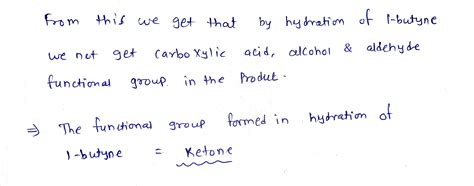 From this we get that by hydration of 1-butyne
we not get carboxylic acid, alcohol & aldehyde
functional group in the Product.
⇒ The functional group formed in hydration of
1-butyne = Ketone